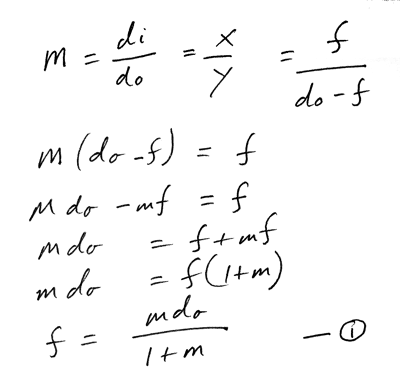 m = di/do = x/y = f/(do - f)
m (do - f) = f
m do - mf = f
m do = f + mf
m do = f(1+m)
f = m do/(1 + m) — ①